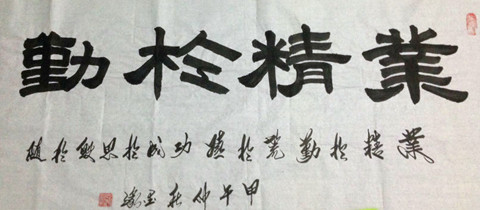 業精於勤
業精於勤荒於嬉功成於思毀於隨
甲午仲秋